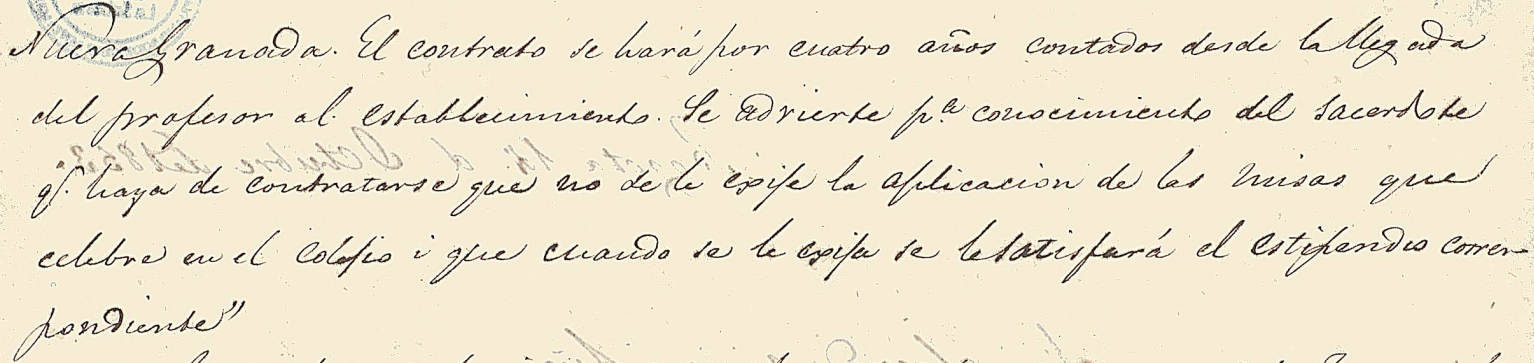 Nueva Granada. El contrato se hará por cuatro años contados desde la llegada
del profesor al establecimiento. Se advierte pª conocimiento del sacerdote
q. haya de contratarse que no se le exije la aplicacion de las misas que
celebre en el colejio i que cuando se le exija se le satisfará el estipendio corres-
pondiente"